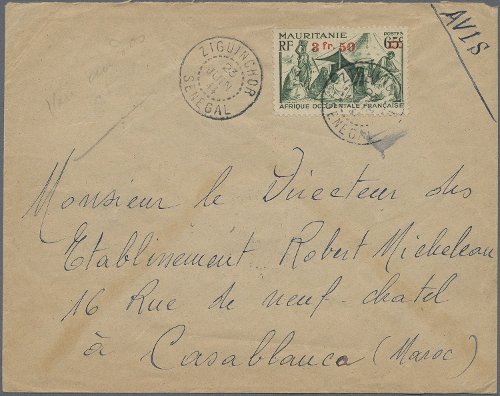 AVIS
MAURITANIE POSTES
RF 3 fr. 50 65c
AFRIQUE OCCIDENTALE FRANÇAISE
ZIGUINCHOR
23
JUIN
SÉNÉGAL
Monsieur le Directeur des
Etablissement Robert Micheleau
16 Rue de neuf-chatel
à Casablanca (Maroc)